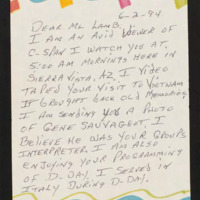 6-2-94
DEAR MR LAMB:
I AM AN AVID VIEWER OF
C-SPAN I WATCH YOU AT
5:00 AM MORNINGS HERE IN
SIERRA VISTA, AZ. I VIDEO
TAPED YOUR VISIT TO VIETNAM
IT BROUGHT BACK OLD MEMORIES
I AM SENDING YOU A PHOTO
OF GENE SAUVAGEOT I
BELIEVE HE WAS YOUR GROUPS
INTERPRETER. I AM ALSO
ENJOYING YOUR PROGRAMMING
OF D-DAY. I SERVED IN
ITALY DURING D-DAY.